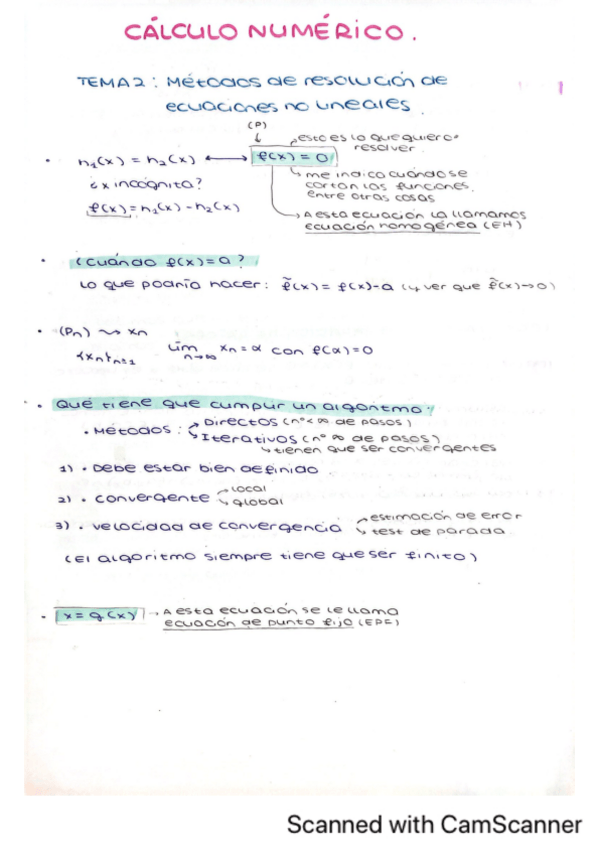 CÁLCULO NUMÉRICO.
TEMA 2: Métodos de resolución de
ecuaciones no lineales.
1
(P)
esto es lo que quiero
resolver.
• h₁(x) = h₂(x) ⟷ f(x) = 0
me indica cuándo se
cortan las funciones,
entre otras cosas
¿x incógnita?
f(x) = h₁(x) - h₂(x)
A esta ecuación la llamamos
ecuación homogénea (EH)
• ¿Cuándo f(x) = a?
Lo que podría hacer: f̃(x) = f(x) - a (y ver que f̃(x) → 0)
• (Pn) ⇝ xn
{xn}n≥1 lim n→∞ xn = α con f(α) = 0
• Qué tiene que cumplir un algoritmo:
• Métodos: Directos (nº < ∞ de pasos)
Iterativos (nº ∞ de pasos)
↳ tienen que ser convergentes
1) • Debe estar bien definido
2) • convergente local
global
3) • velocidad de convergencia estimación de error
test de parada
(El algoritmo siempre tiene que ser finito)
• x = g(x) → A esta ecuación se le llama
ecuación de punto fijo (EPF)
Scanned with CamScanner